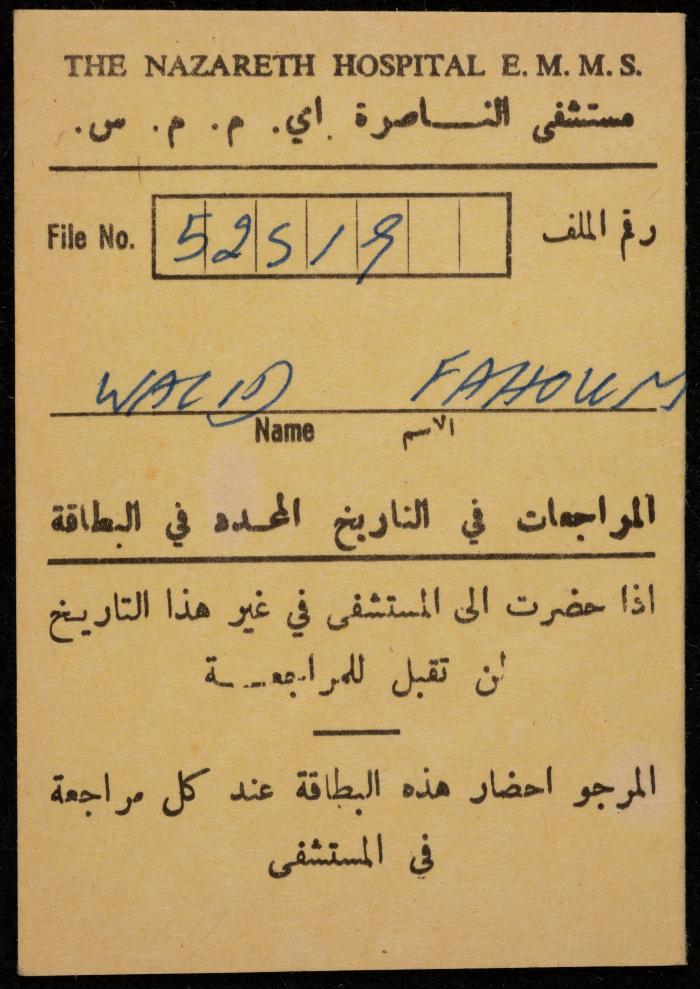 THE NAZARETH HOSPITAL E. M. M. S.
مستشفى النـــاصرة اي. م. م. س.
File No. 52519 رقم الملف
WALID FAHOUM
Name الاسم
المراجعات في التاريخ المحـدده في البطاقة
اذا حضرت الى المستشفى في غير هذا التاريـخ
لن تقبل للمراجعـــة
المرجو احضار هذه البطاقة عند كل مراجعة
في المستشفى